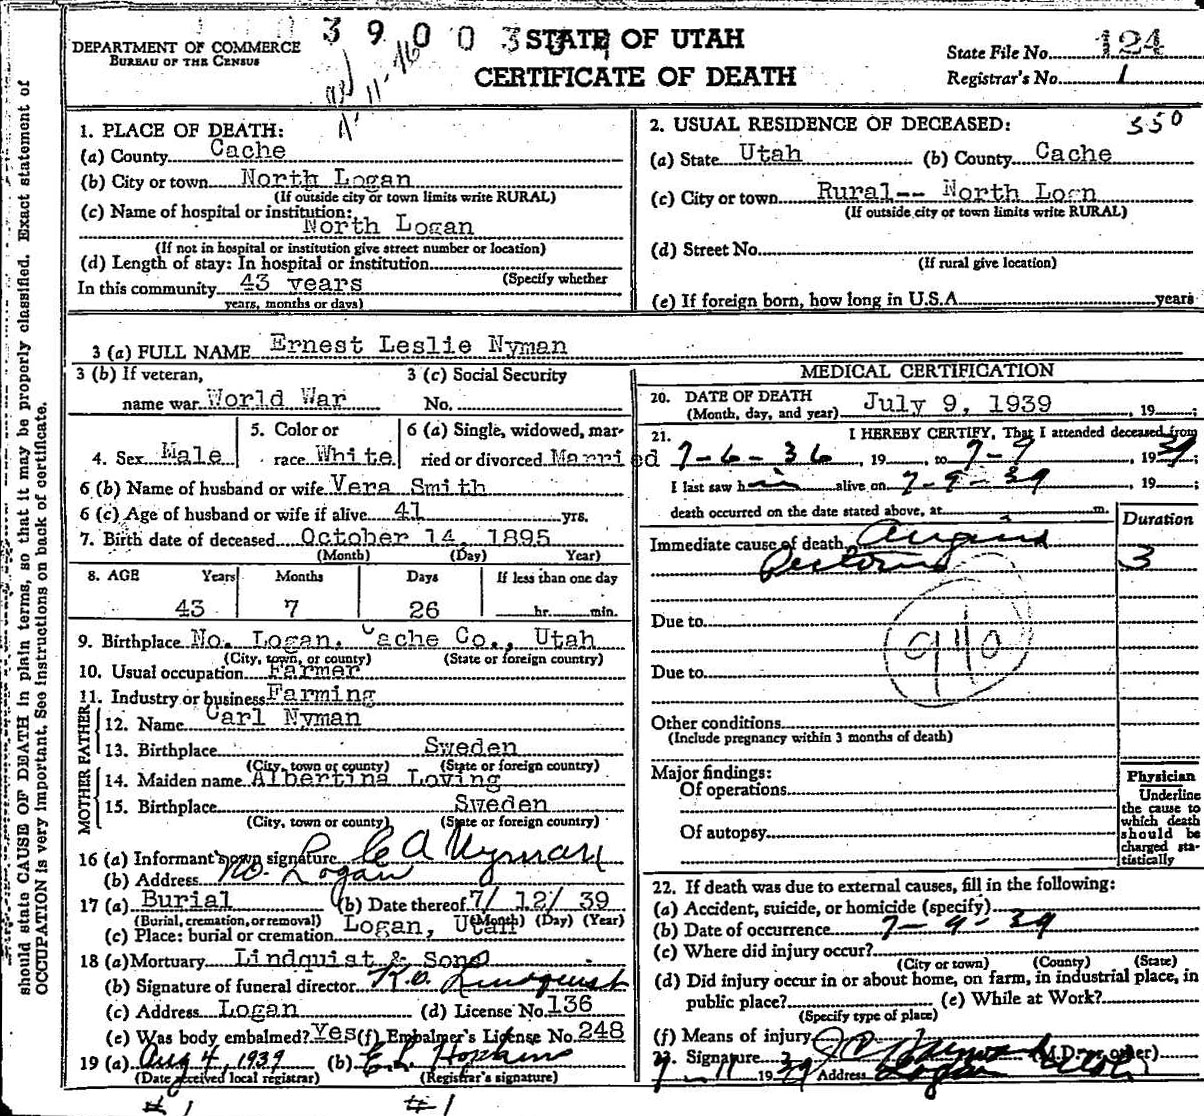 3 9 0 0 3
DEPARTMENT OF COMMERCE
BUREAU OF THE CENSUS
STATE OF UTAH
CERTIFICATE OF DEATH
State File No. 124
Registrar's No. 1
11-16
should state CAUSE OF DEATH in plain terms, so that it may be properly classified. Exact statement of
OCCUPATION is very important. See instructions on back of certificate.
1. PLACE OF DEATH:
(a) County Cache
(b) City or town North Logan
(If outside city or town limits write RURAL)
(c) Name of hospital or institution:
North Logan
(If not in hospital or institution give street number or location)
(d) Length of stay: In hospital or institution
(Specify whether
In this community 43 years
years, months or days)
2. USUAL RESIDENCE OF DECEASED: 350
(a) State Utah (b) County Cache
(c) City or town Rural-- North Logn
(If outside city or town limits write RURAL)
(d) Street No.
(If rural give location)
(e) If foreign born, how long in U.S.A years
3 (a) FULL NAME Ernest Leslie Nyman
3 (b) If veteran,
name war World War
3 (c) Social Security
No.
4. Sex Male
5. Color or
race White
6 (a) Single, widowed, mar-
ried or divorced Married
6 (b) Name of husband or wife Vera Smith
6 (c) Age of husband or wife if alive 41 yrs.
7. Birth date of deceased October 14, 1895
(Month) (Day) Year)
8. AGE Years Months Days If less than one day
43 7 26 hr. min.
9. Birthplace No. Logan, Cache Co., Utah
(City, town, or county) (State or foreign country)
10. Usual occupation Farmer
11. Industry or business Farming
FATHER
12. Name Carl Nyman
13. Birthplace Sweden
(City, town or county) (State or foreign country)
MOTHER
14. Maiden name Albertina Loving
15. Birthplace Sweden
(City, town or county) (State or foreign country)
16 (a) Informant's own signature C A Nyman
(b) Address No. Logan
17 (a) Burial (b) Date thereof 7/ 12/ 39
(Burial, cremation, or removal) (Month) (Day) (Year)
(c) Place: burial or cremation Logan, Utah
18 (a) Mortuary Lindquist & Sons
(b) Signature of funeral director R.O. Lindquist
(c) Address Logan (d) License No. 136
(e) Was body embalmed? Yes (f) Embalmer's License No. 248
19 (a) Aug 4, 1939 (b) E.L. Hopkins
(Date received local registrar) (Registrar's signature)
#1 #1
MEDICAL CERTIFICATION
20. DATE OF DEATH
(Month, day, and year) July 9, 1939, 19 ;
21. I HEREBY CERTIFY, That I attended deceased from
7-6-36, 19 , to 7-9, 1939
I last saw him alive on 7-9-39, 19 ;
death occurred on the date stated above, at m.
Duration
Immediate cause of death Angina
Pectoris 3
Due to
940
Due to
Other conditions
(Include pregnancy within 3 months of death)
Major findings:
Of operations
Of autopsy
Physician
Underline
the cause to
which death
should be
charged sta-
tistically
22. If death was due to external causes, fill in the following:
(a) Accident, suicide, or homicide (specify)
(b) Date of occurrence 7-9-39
(c) Where did injury occur?
(City or town) (County) (State)
(d) Did injury occur in or about home, on farm, in industrial place, in
public place? (e) While at Work?
(Specify type of place)
(f) Means of injury
23. Signature (M.D. or other)
7-11 1939 Address Logan Utah